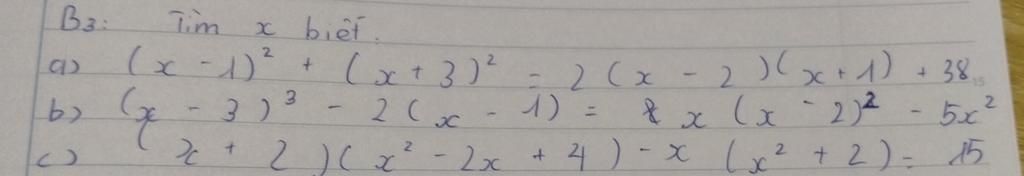 B3: Tìm x biết.
a) (x - 1)² + (x + 3)² = 2(x - 2)(x + 1) + 38
b) (x - 3)³ - 2(x - 1) = x(x - 2)² - 5x²
c) (x + 2)(x² - 2x + 4) - x(x² + 2) = 15